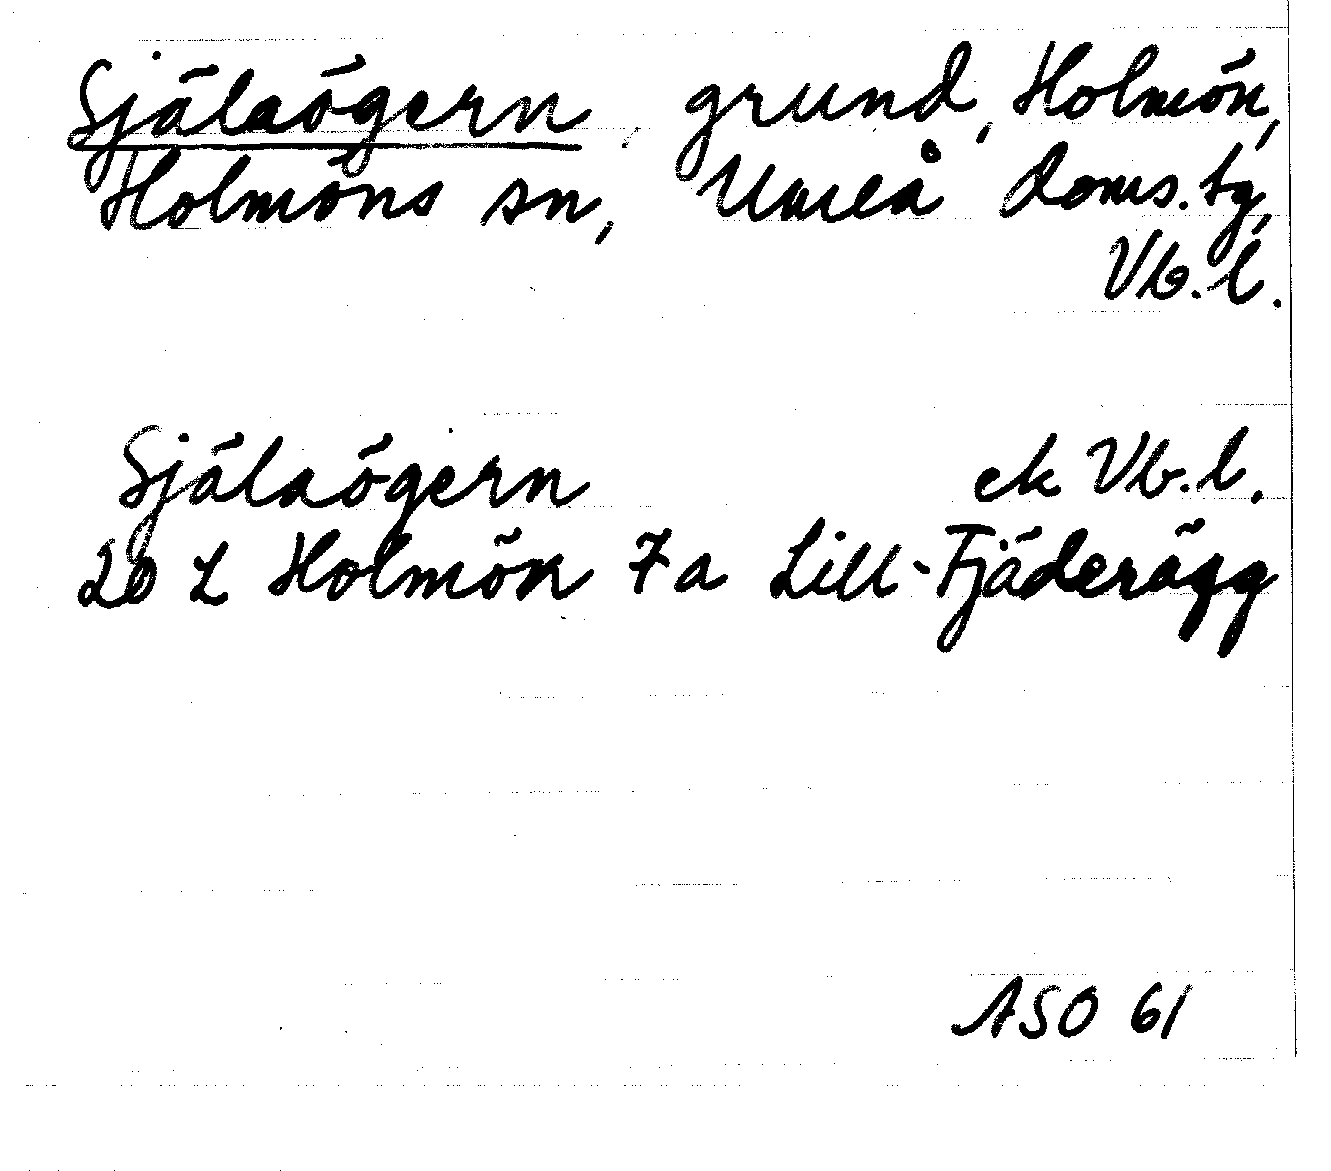 Själaögern, grund, Holmön,
Holmöns sn, Umeå doms.tg,
Vb.l.
Själaögern ek Vb.l.
20 L Holmön 7a Lill-Fjäderägg
ASO 61